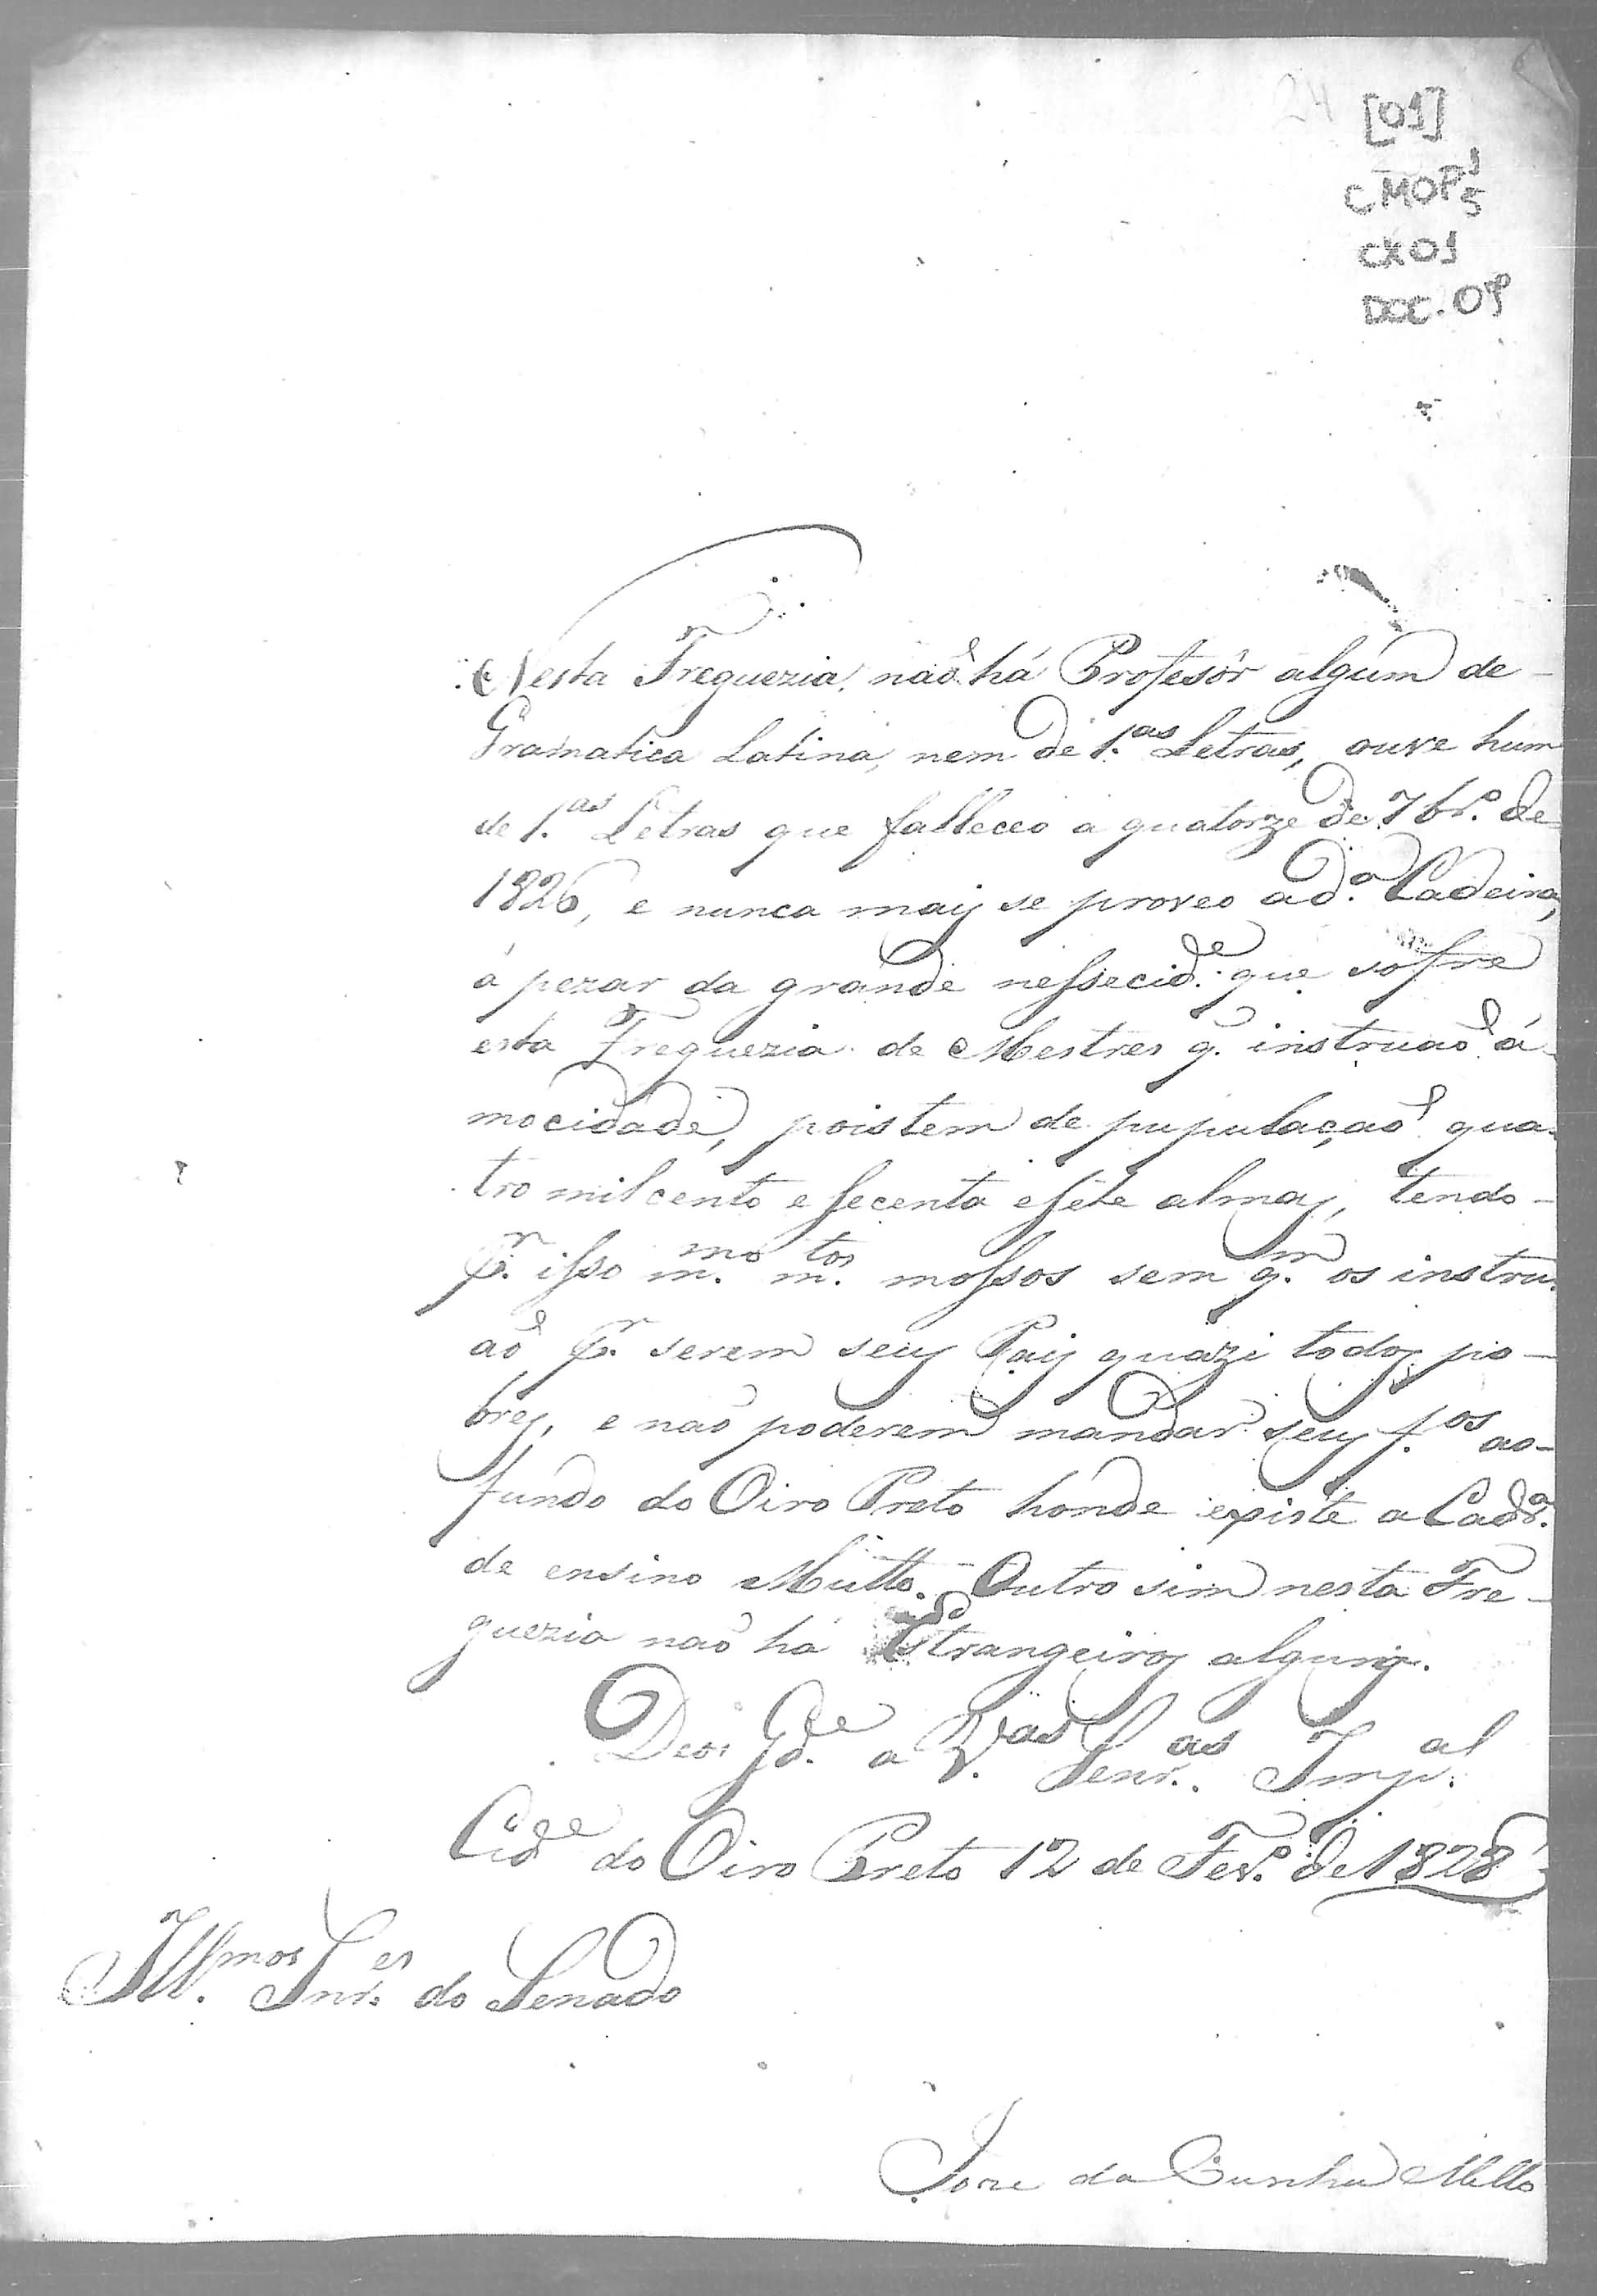 24
[01]
CMOP 1/5
CX 01
DOC. 09
Nesta Freguezia, naõ há Profesôr algum de
Gramatica Latina, nem de 1.as Letras, ouve hum
de 1.as Letras que falleceo a quatorze de 7br.o de
1826, e nunca mais se proveo a d.a Cadeira,
á pezar da grande nessecid.e que sofre
esta Freguezia de Mestres q. instruaõ á
mocidade, pois tem de pupulaçaõ qua
tro mil cento e secenta e sete almas, tendo
p.r isso m.mo m.tos mossos sem q.m os instru
aõ p.r serem seus Pais quazi todos po-
bres, e naõ poderem mandar seus f.os ao
fundo do Oiro Preto honde existe a Cadr.a
de ensino Mutto. Outro sim nesta Fre-
guezia naõ há Estrangeiros alguns.
Deos G.de a V.as Senr.as Imp.al
Cid.e do Oiro Preto 12 de Fev.o de 1828
Ill.mos Snr.es do Senado
Joze da Cunha Mello